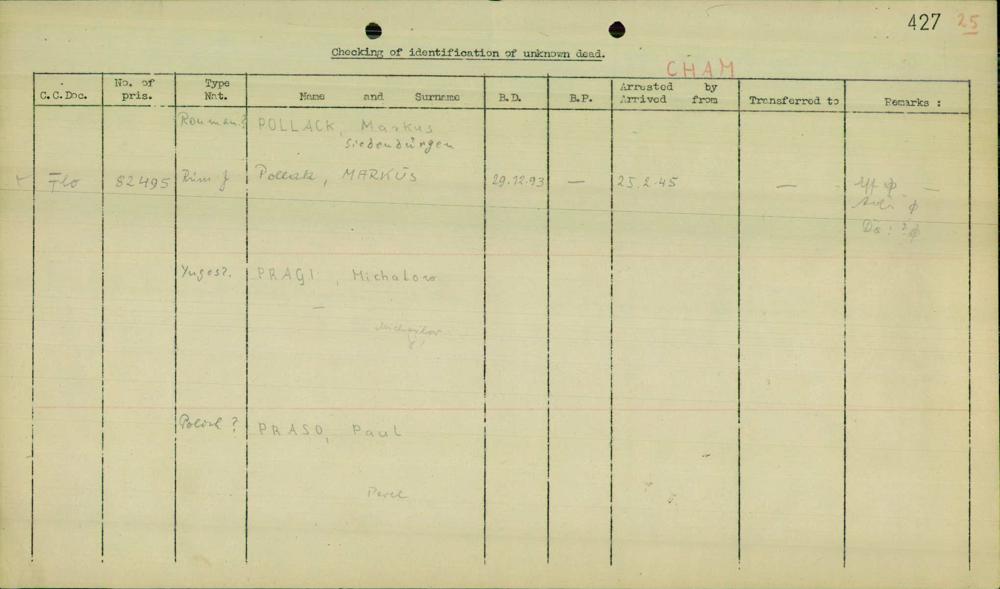 427 25
Checking of identification of unknown dead.
CHAM
C.C.Doc. No. of pris. Type Nat. Name and Surname B.D. B.P. Arrested by Arrived from Transferred to Remarks :
Rouman? POLLACK, Markus
Siebenbürgen
Flo 82495 Pollak, MARKUS 29.12.93 — 25.2.45 —
Yugos?. PRAGI, Michalow
—
Polish? PRASO, Paul
Pavel